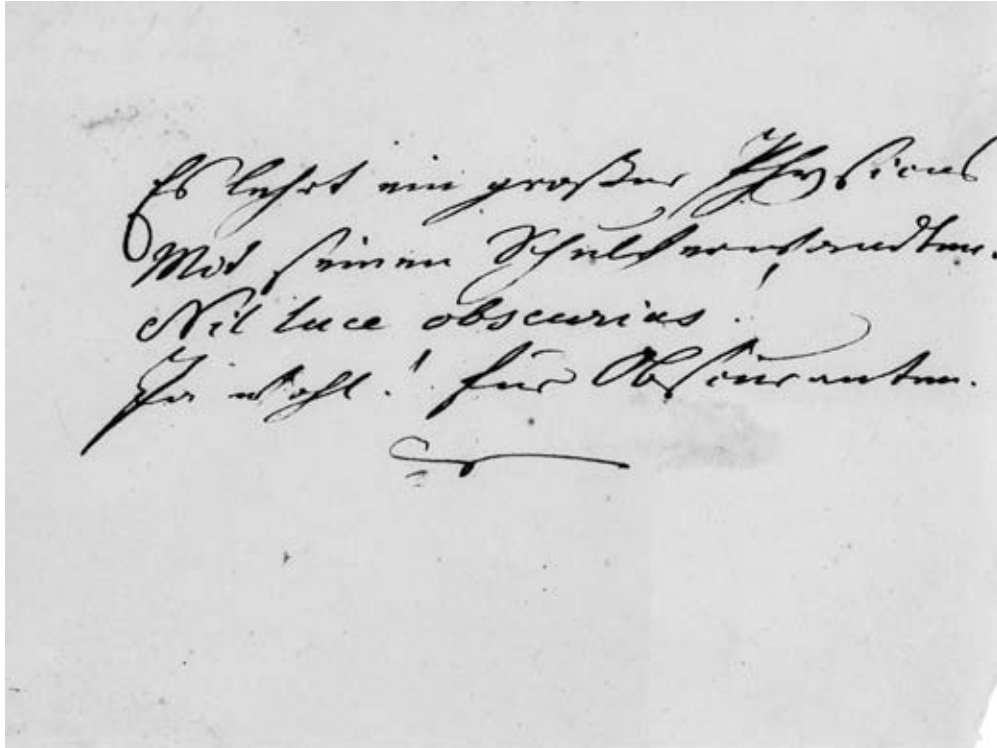 Es lehrt ein großer Physicus
Mit seinen Schulverwandten.
Nil luce obscurius.
Ja wohl! für Obscuranten.